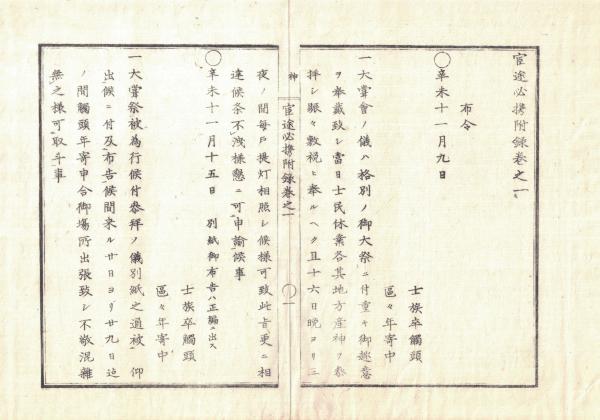 宦途必携附録巻之一
布令
〇辛未十一月九日
士族卒觸頭
區々年寄中
一大嘗會ノ儀ハ格別ノ御大祭ニ付重キ御趣意
ヲ奉戴致シ當日士民休業各其地方産神ヲ参
拝シ賑々敷祝ヒ奉ルヘク且十六日晩ヨリ三
神 宦途必携附録巻之一 〇一
夜ノ間毎戸提灯相照シ候様可致此旨更ニ相
達候条不洩様懇ニ可申諭候事
〇辛未十一月十五日 別紙御布告ハ正編ニ出ス
士族卒觸頭
區々年寄中
一大嘗祭被為行候付参拜ノ儀別紙之通被 仰
出候ニ付及布告候間来ル廿日ヨリ廿九日迠
ノ間觸頭年寄申合御場所出張致シ不敬混雜
無之様可取斗事